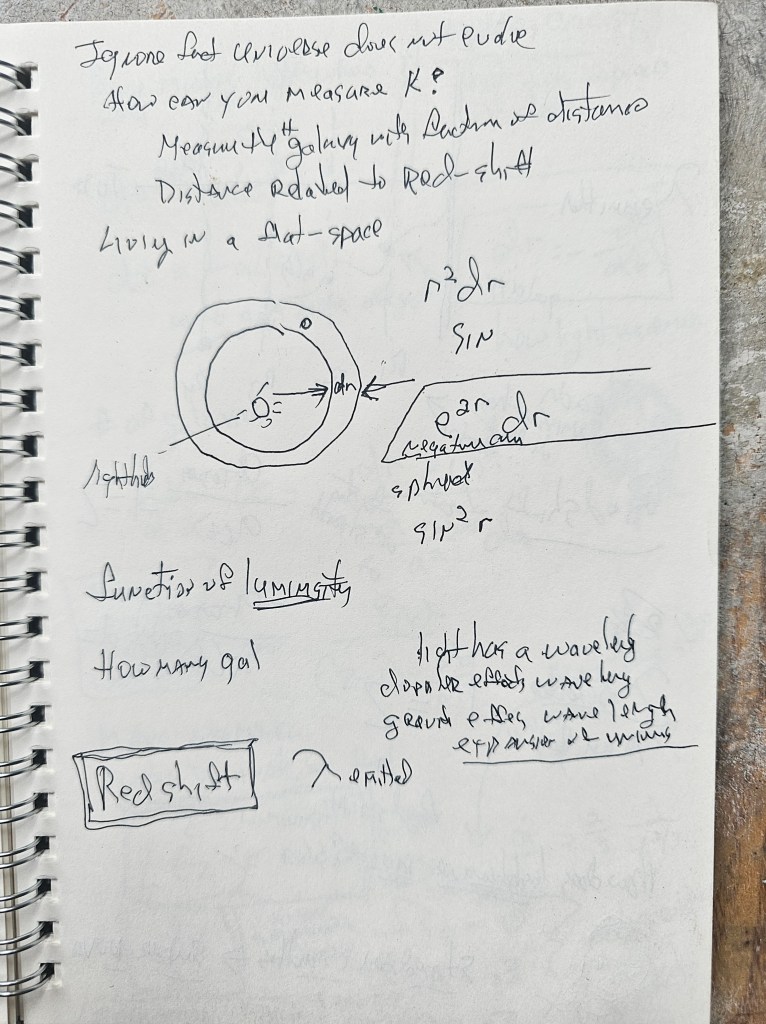 Ignore fact universe does not evolve
How can you measure K?
Measure the # galaxy with function of distance
Distance related to Red-shift
Living in a flat-space
r² dr
sin
dr
e²ʳ dr
negative
sin² r
function of luminosity
How many gal
light has a waveleng
doppler effects waveleng
effes wave length
expansion of univers
Red shift
λ emitted